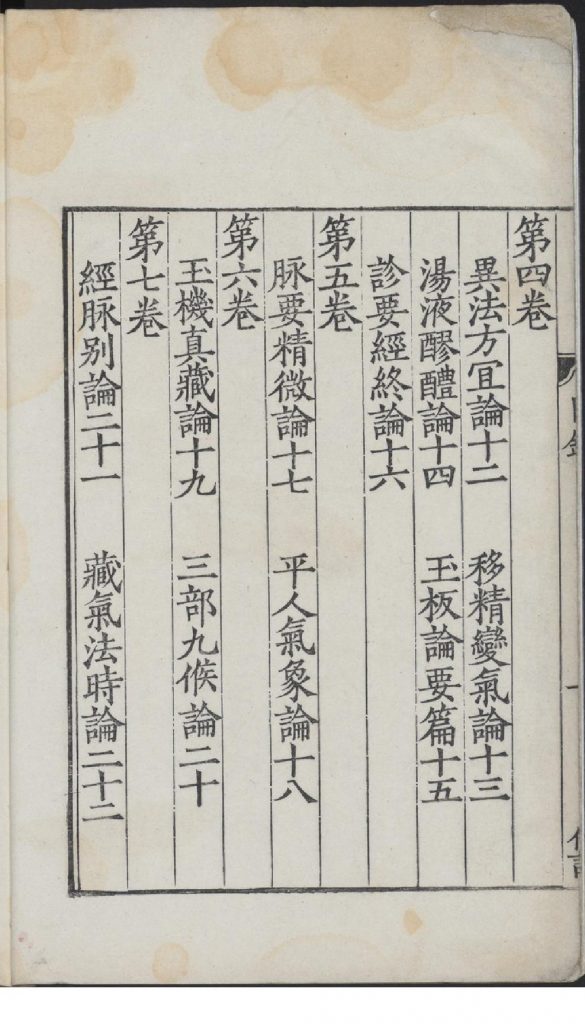 第四卷
異法方宜論十二 移精變氣論十三
湯液醪醴論十四 玉板論要篇十五
診要經終論十六
第五卷
脉要精微論十七 平人氣象論十八
第六卷
玉機真藏論十九 三部九候論二十
第七卷
經脉别論二十一 藏氣法時論二十二